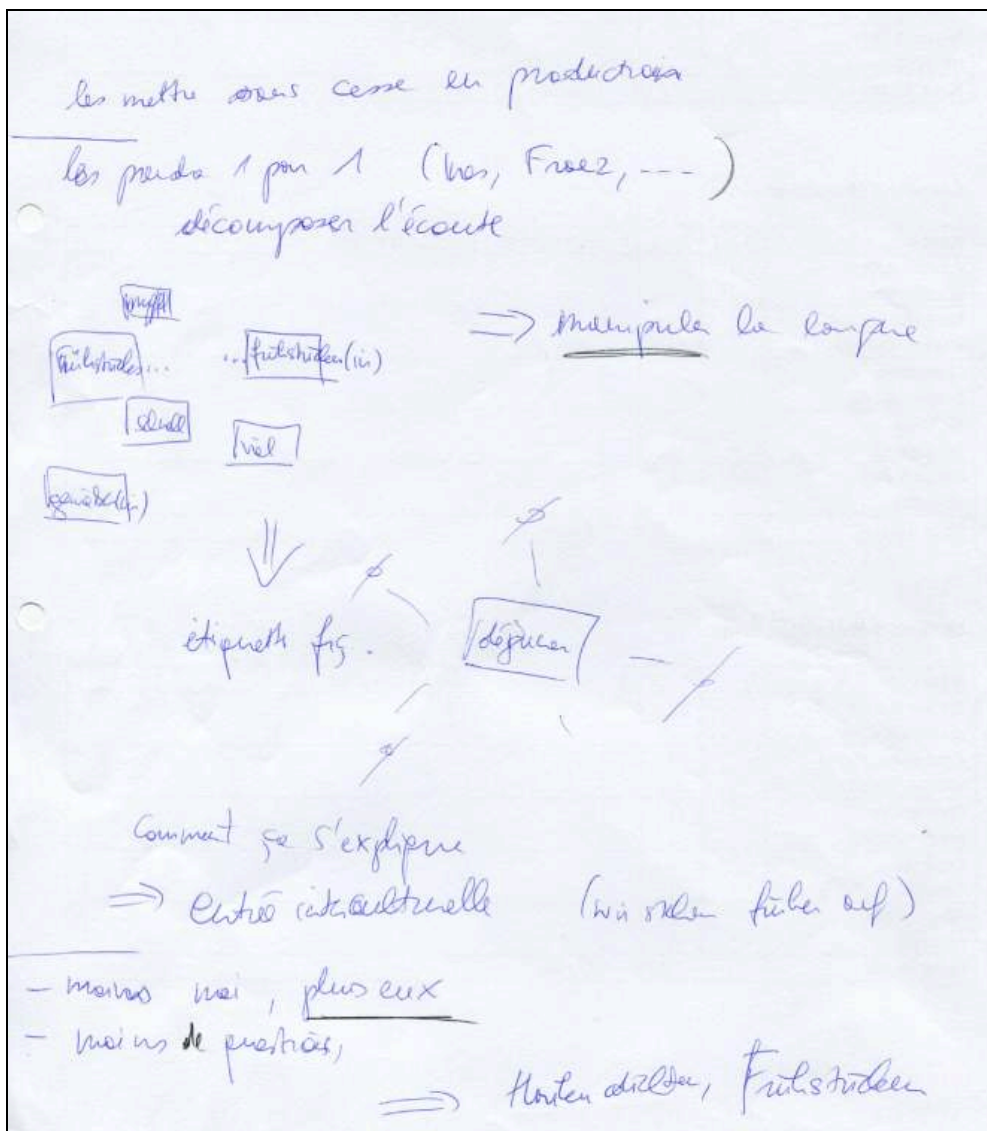 les mettre sans cesse en production
les prendre 1 par 1 (
décomposer l'écoute
⇒ manipuler la langue
Frühstücken... ...frühstücken(in)
schnell
viel
étiquette fig. déjeuner
Comment ça s'explique
⇒ entrée interculturelle (wir stehen früher auf)
- moins moi, plus eux
- moins de questions,
⇒ Frühstücken